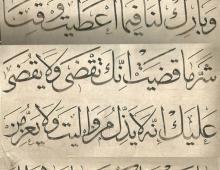 وبارك لنا فيما أعطيت وقنا
شر ما قضيت انك تقضى ولا يقضى
عليك انه لا يذل من واليت ولا يعز من